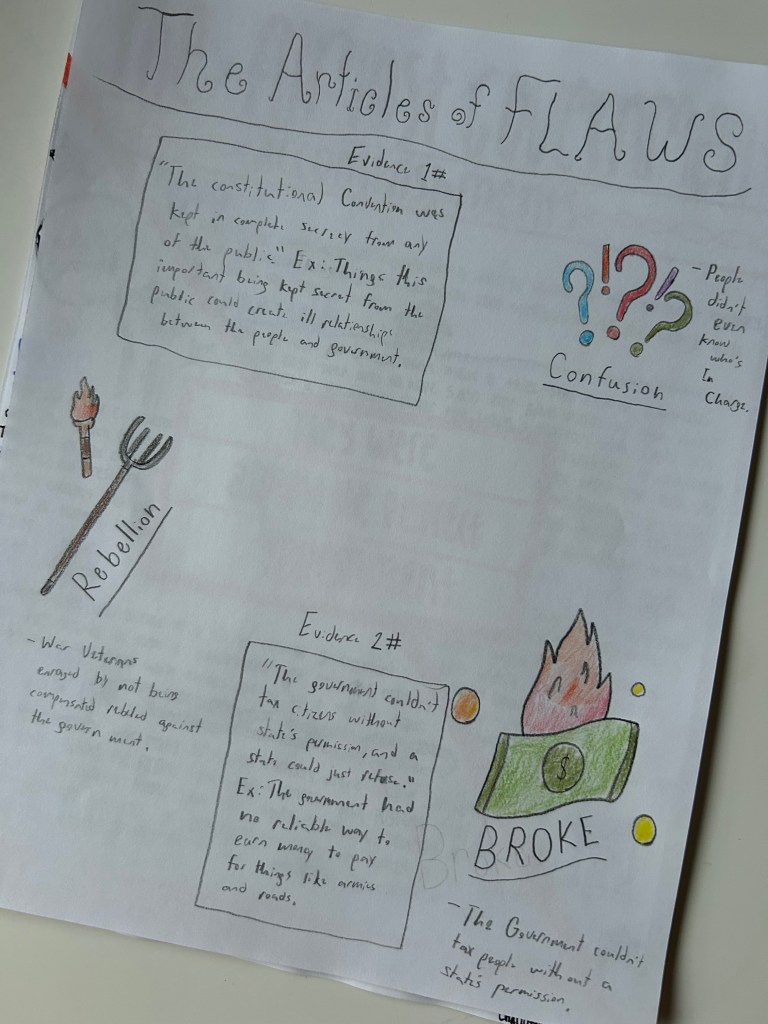 The Articles of FLAWS
Evidence 1#
"The constitutional Convention was
kept in complete secrecy from any
of the public." Ex: Things this
important being kept secret from the
public could create ill relationships
between the people and government.
- People
didn't
even
know
who's
In
Charge.
Confusion
Rebellion
- War Veterans
enraged by not being
compensated rebeled against
the government.
Evidence 2#
"The government couldn't
tax citizens without
state's permission, and a
state could just refuse."
Ex: The government had
no reliable way to
earn money to pay
for things like armies
and roads.
$
BROKE
- The Government couldn't
tax people without a
state's permission.